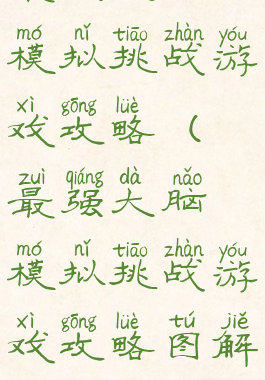 mó nǐ tiāo zhàn yóu
模拟挑战游
xì gōng lüè
戏攻略（
zuì qiáng dà nǎo
最强大脑
mó nǐ tiāo zhàn yóu
模拟挑战游
xì gōng lüè tú jiě
戏攻略图解